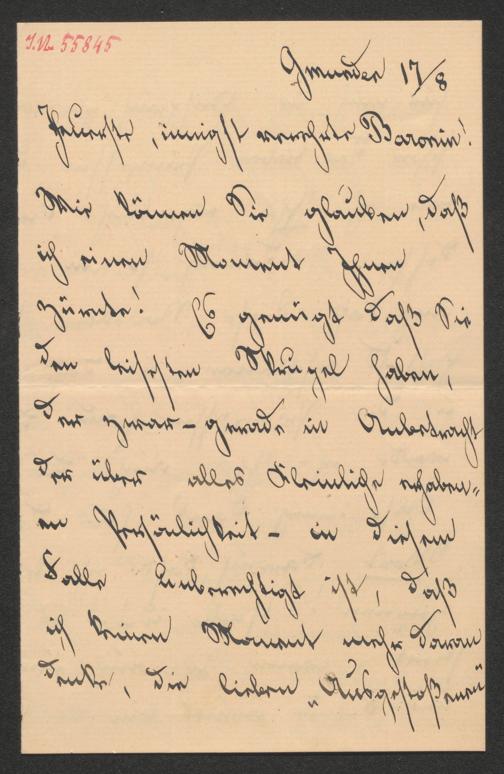 J.N. 55845
Gmunden 17/8
Theuerste, innigst verehrte Baronin!
Wie können Sie glauben, daß
ich einen Moment Ihnen
zürnte! Es genügt daß Sie
den leisesten Skrupel haben,
der zwar – gerade in Anbetracht
der über alles Kleinliche erhaben=
en Persönlichkeit – in diesem
Falle unberechtigt ist, daß
ich keinen Moment mehr daran
denke, die lieben „Ausgestoßenen"